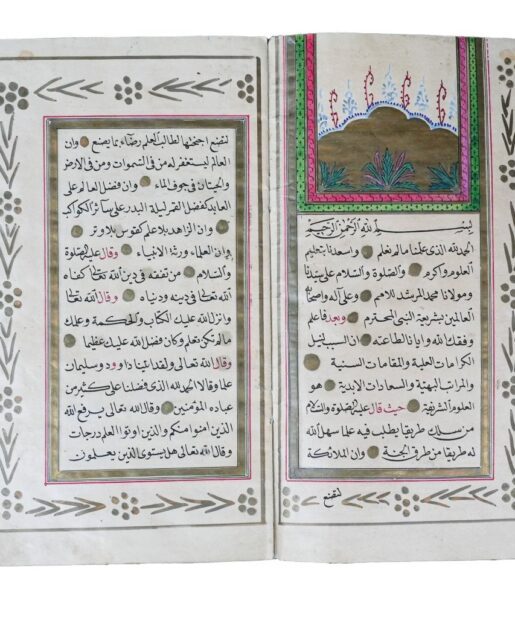 بسم الله الرحمن الرحيم
الحمد لله الذي علمنا ما لم نعلم واسعدنا بتعليم
العلوم واكرم والصلوة والسلام على سيدنا
ومولانا محمد المرشد للاهم وعلى آله واصحابه
العالمين بشريعة النبي المحترم وبعد فاعلم
وفقك الله وايانا لطاعته ان السبب لنيل
الكرامات العلية والمقامات السنية
والمراتب البهية والسعادات الابدية هو
العلوم الشريفة حيث قال عليه الصلوة والسلام
من سلك طريقا يطلب فيه علما سهل الله
له طريقا من طرق الجنة وان الملائكة
لتضع
لتضع اجنحتها لطالب العلم رضاء بما يصنع وان
العالم ليستغفر له من في السموات ومن في الارض
والحيتان في جوف الماء وان فضل العالم على
العابد كفضل القمر ليلة البدر على سائر الكواكب
وان الزاهد بلا علم كقوس بلا وتر
وان العلماء ورثة الانبياء وقال عليه الصلوة
والسلام من تفقه في دين الله تعالى كفاه
الله تعالى في دينه ودنياه وقال الله تعالى
وانزل الله عليك الكتاب والحكمة وعلمك
ما لم تكن تعلم وكان فضل الله عليك عظيما
وقال الله تعالى ولقد اتينا داود وسليمان
علما وقالا الحمد لله الذي فضلنا على كثير من
عباده المؤمنين وقال الله تعالى يرفع الله
الذين آمنوا منكم والذين اوتوا العلم درجات
وقال الله تعالى هل يستوي الذين يعلمون